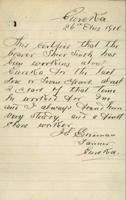 Eureka
26th Aug 1911
This certifies that the
bearer Sher Singh has
been working about
Eureka for the last
few or four years about
2 years of that time
he worked for me
and I always found him
very steady, and a first
class worker
J. Grennan
Farmer
Eureka.